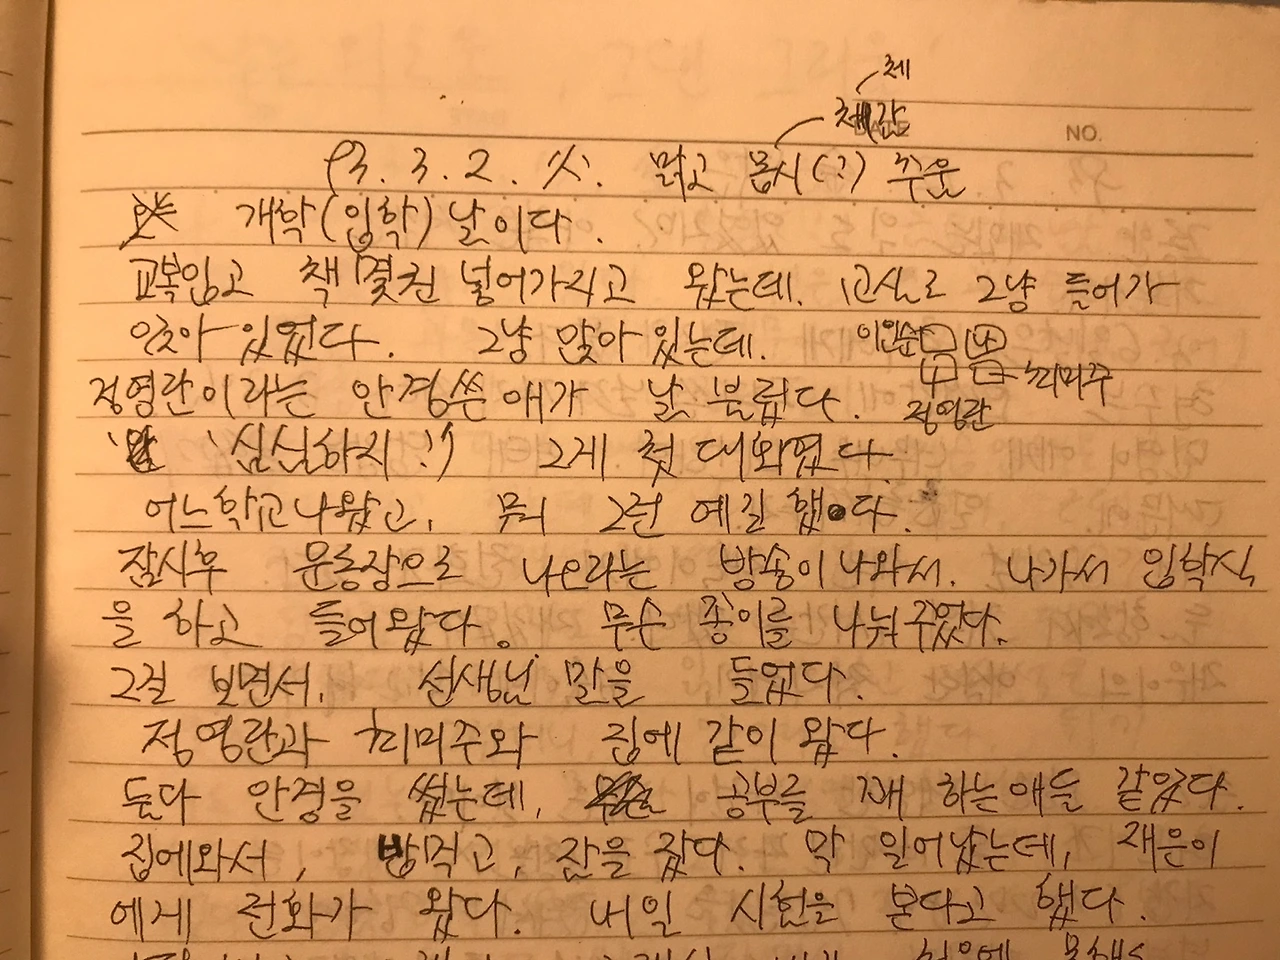 체
체감
NO.
93. 3. 2. 火. 맑고 몹시(?) 추움
개학(입학)날이다.
교복입고 책 몇권 넣어가지고 왔는데. 교실로 그냥 들어가
앉아 있었다. 그냥 앉아있는데. 이인순
정영란이라는 안경쓴 애가 날 부렀다. 최미주
정영란
'심심하지?' 그게 첫 대화였다.
어느학교나왔고, 뭐 그런 얘길 했다.
잠시후 운동장으로 나오라는 방송이나와서. 나가서 입학식
을 하고 들어왔다. 무슨 종이를 나눠주었다.
그걸 보면서. 선생님 말을 들었다.
정영란과 최미주와 집에 같이 왔다.
둘다 안경을 썼는데, 공부를 꽤 하는애들 같았다.
집에와서, 밥먹고, 잠을 잤다. 막 일어났는데, 재은이
에게 전화가 왔다. 내일 시험을 본다고 했다.